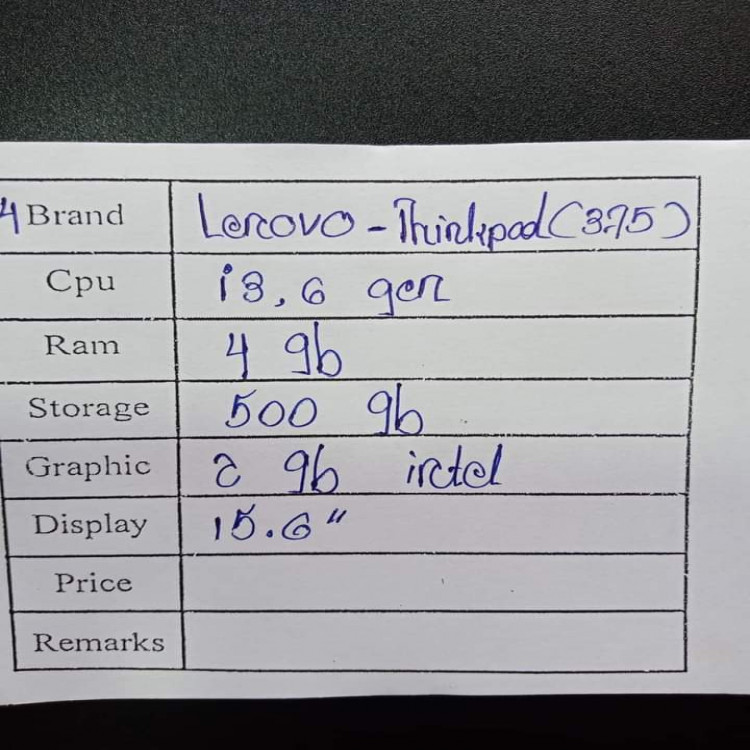 4 Brand Lenovo - Thinkpad (375)
Cpu i3, 6 gen
Ram 4 gb
Storage 500 gb
Graphic 2 gb intel
Display 15.6"
Price
Remarks